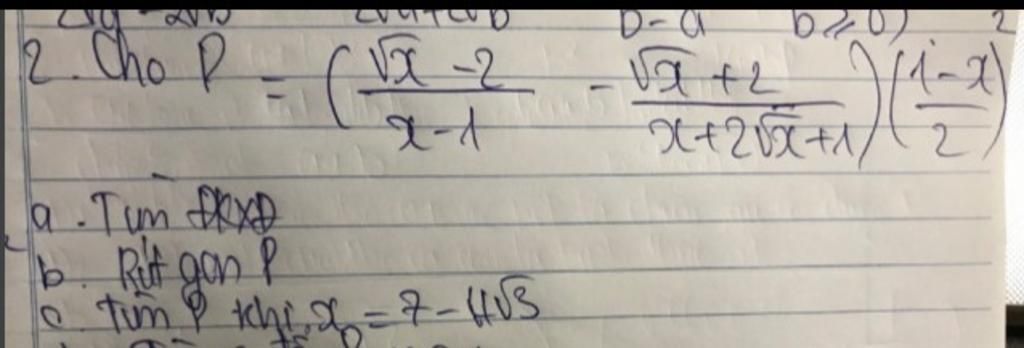 b-a b≥0) 2
2. Cho P = (√x - 2 / x - 1 - √x + 2 / x + 2√x + 1)(1 - x / 2)
a. Tìm ĐKXĐ
b. Rút gọn P
c. Tìm P khi x = 7 - 4√3